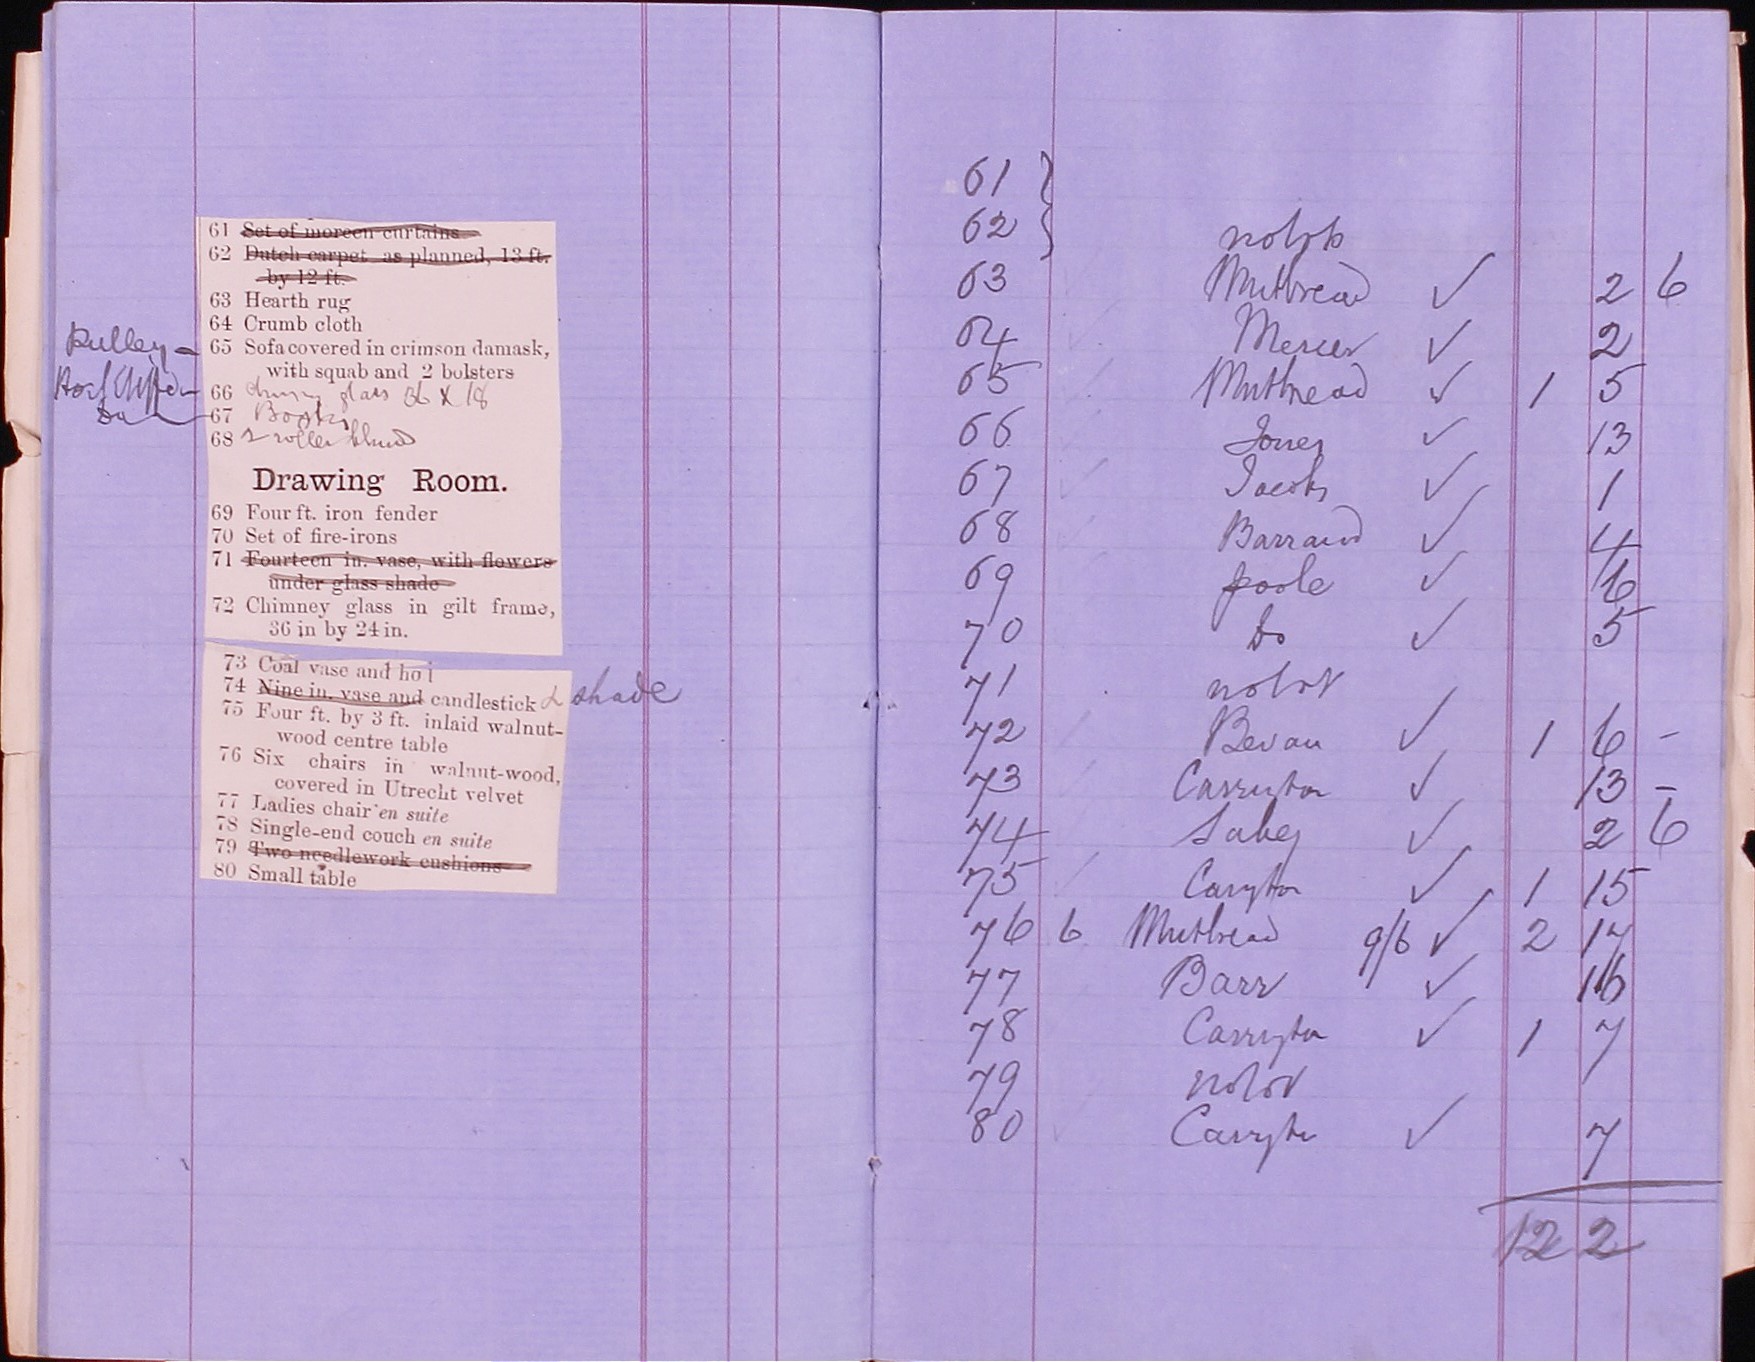 61 Set of moreen curtains
62 Dutch carpet as planned, 13 ft.
by 12 ft.
63 Hearth rug
64 Crumb cloth
65 Sofa covered in crimson damask,
with squab and 2 bolsters
66 glass 36 X 18
67 Books
68 2 roller blinds
Drawing Room.
69 Four ft. iron fender
70 Set of fire-irons
71 Fourteen in. vase, with flowers
under glass shade
72 Chimney glass in gilt frame,
36 in by 24 in.
73 Coal vase and
74 Nine in. vase and candlestick & shade
75 Four ft. by 3 ft. inlaid walnut-
wood centre table
76 Six chairs in walnut-wood,
covered in Utrecht velvet
77 Ladies chair en suite
78 Single-end couch en suite
79 Two needlework cushions
80 Small table
Pulley
Do
61
62 no lots
63 ✓ 2 6
64 Mercer ✓ 2
65 ✓ 1 5
66 Jones ✓ 13
67 Jacobs ✓ 1
68 Barraud ✓ 4
69 Poole ✓
70 Do ✓ 5
71 no lot
72 Bevan ✓ 1 6 -
73 ✓ 13 -
74 ✓ 2 6
75 ✓ 1 15
76 6 9/6 ✓ 2 17
77 Barr ✓ 16
78 ✓ 1 7
79 no lot
80 ✓ 7
12 2